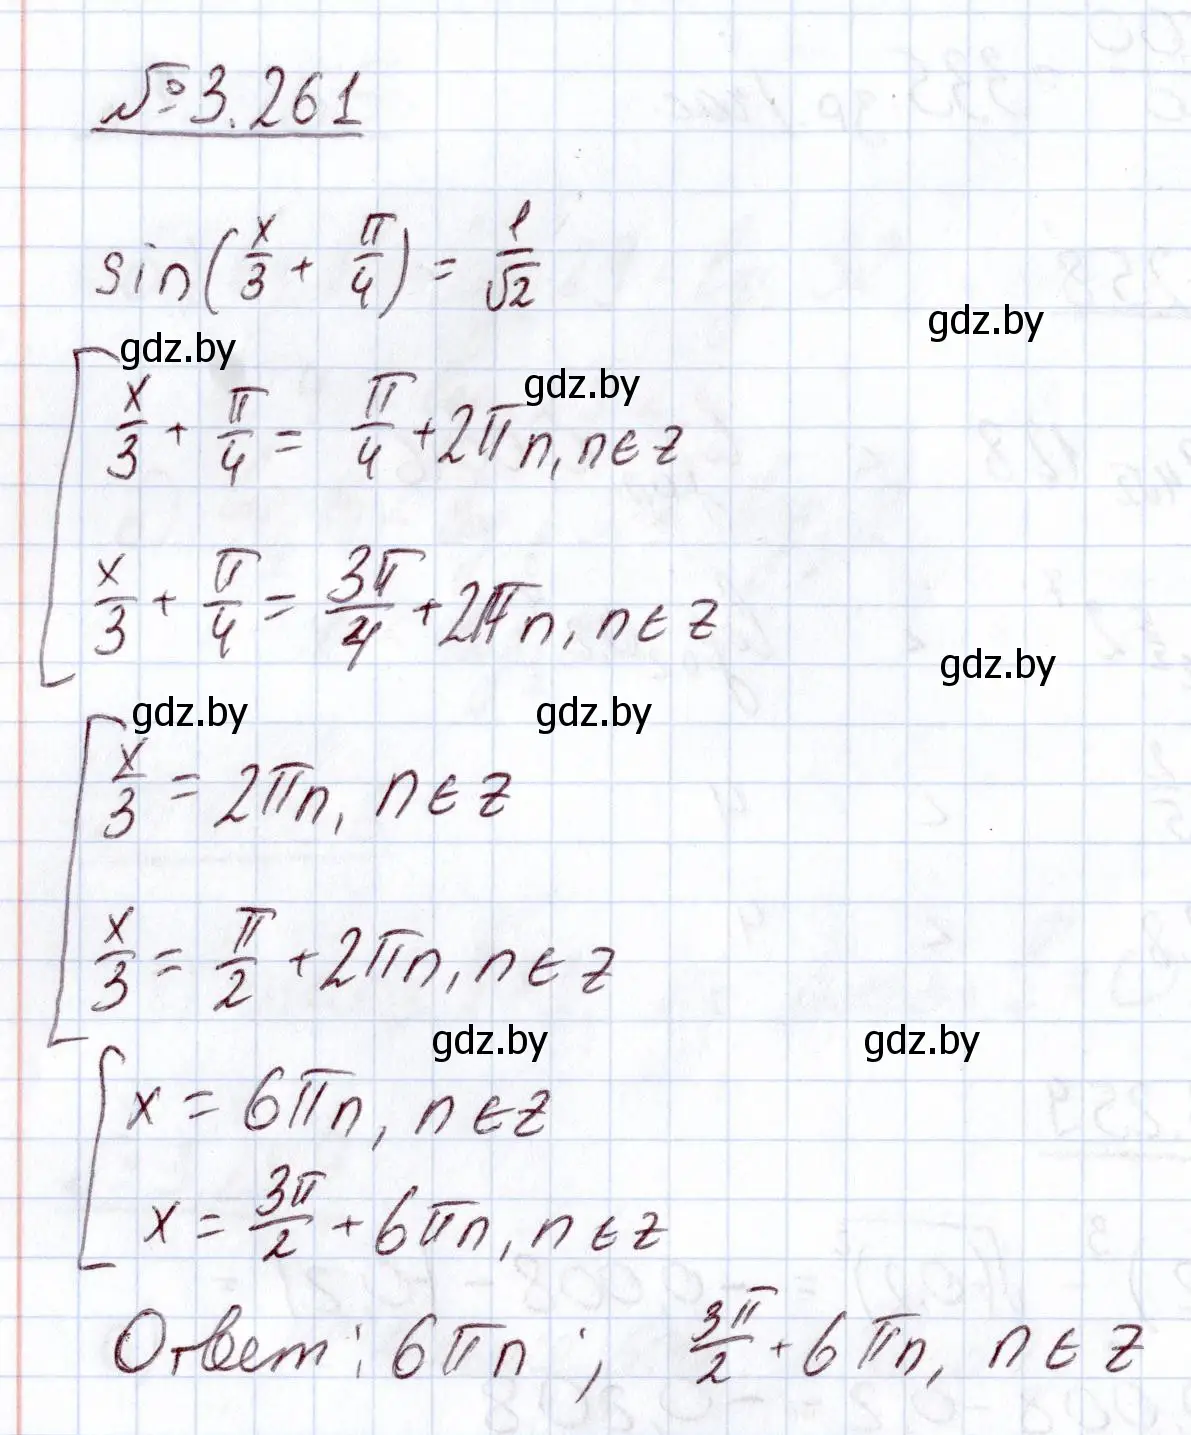 № 3.261
sin(x/3 + π/4) = 1/√2
gdz.by
gdz.by
gdz.by
x/3 + π/4 = π/4 + 2πn, n ∈ z
x/3 + π/4 = 3π/4 + 2πn, n ∈ z
gdz.by
gdz.by
gdz.by
x/3 = 2πn, n ∈ z
x/3 = π/2 + 2πn, n ∈ z
gdz.by
gdz.by
x = 6πn, n ∈ z
x = 3π/2 + 6πn, n ∈ z
Ответ: 6πn; 3π/2 + 6πn, n ∈ z